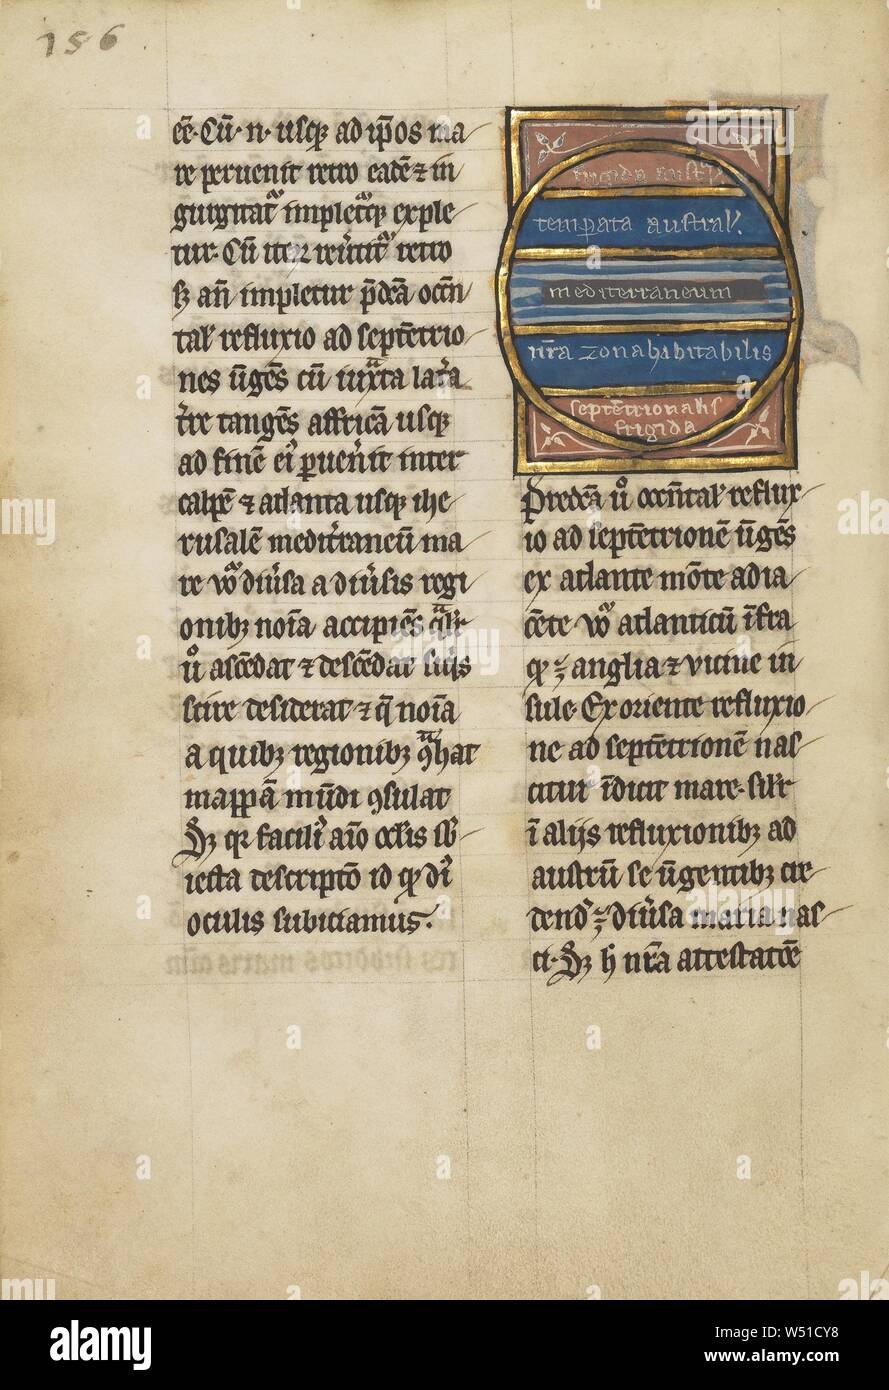 156
eē. Cū. n. usq ad ip̄os ma
re peruenit retro eadē ⁊ in
gurgitat᷑ impletq᷑ exple
tur. Cū iteꝝ reūtit᷑ retro
sꝫ añ impletur p̄dc̄a occn̄
tal' refluxio ad septētrio
nes ūgēs cū iuxta lat̄a
t̄re tangēs affricā usq
ad finē ei' ꝑuen̄it inter
calpē ⁊ atlanta usq ihe
rusalē medit̄raneū ma
re uo͛ diu̾sa a diu̾sis regi
onibꝫ noīa accipiēs
u͛o ascēdat ⁊ descēdat siq̾s
scire desiderat ⁊ q̄ noīa
a quibꝫ regionibꝫ ꝯt̾hat
mappā mūdi ꝯsulat
Sꝫ qr facili' aīo oclis sb̄
iecta descriptō id
oculis subiciamus.
frigida aust᷑
temꝑata austral'.
mediterraneum
nr̄a zona habitabilis
septētrionalis
frigida
Predc̄a u͛o occn̄tal' reflux
io ad septētrionē ūgēs
ex atlante mōte adia
cēte uo͛ atlanticū īfra
anglia ⁊ uicine in
sule. Ex oriente refluxio
ne ad septētrionē nas
citur īdicū mare. sil'r
ī alijs refluxionibꝫ ad
austrū se ūgentibꝫ cre
dend' diu̾sa maria nas
ci. Sꝫ h̄ nr̄a attestat̄ōe
alamy
Image ID: W51CY8
www.alamy.com